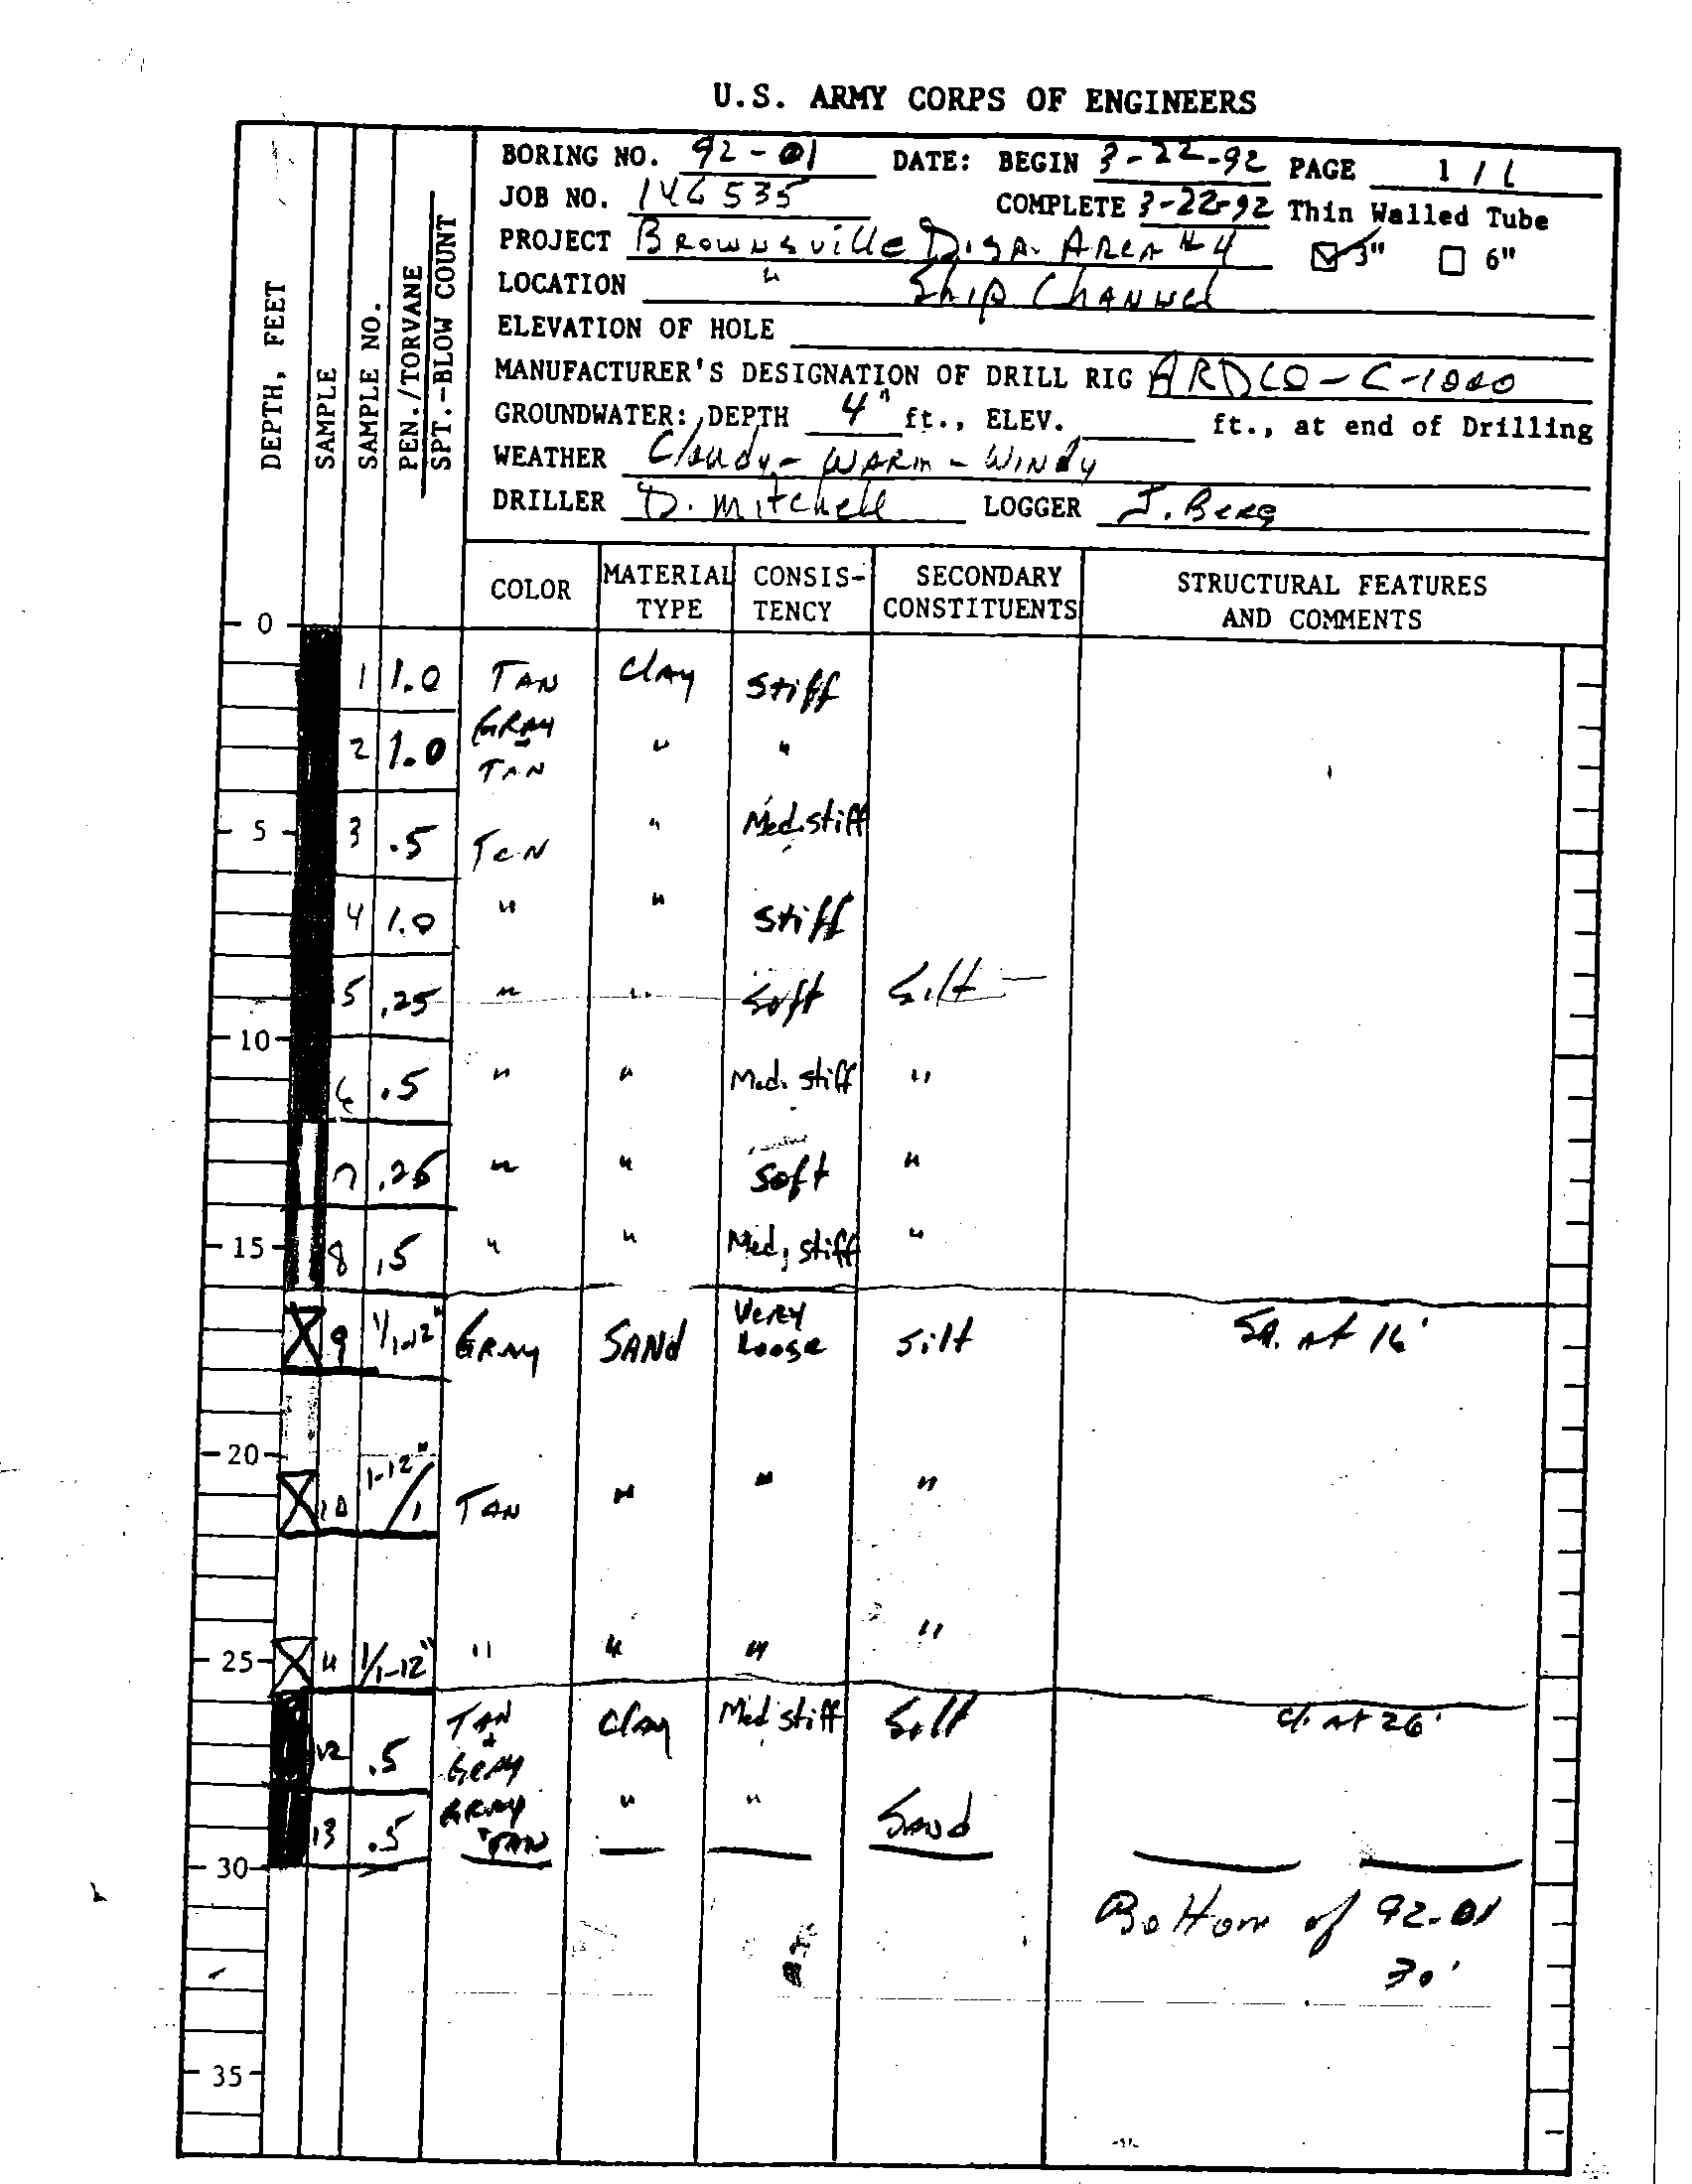 U.S. ARMY CORPS OF ENGINEERS
BORING NO. 92-01 DATE: BEGIN 3-22-92 PAGE 1/1
JOB NO. 146535 COMPLETE 3-22-92 Thin Walled Tube
PROJECT Brownsville Disp. Area #4 3" 6"
LOCATION " Ship Channel
ELEVATION OF HOLE
MANUFACTURER'S DESIGNATION OF DRILL RIG ARDCO-C-1000
GROUNDWATER: DEPTH 4" ft., ELEV. ft., at end of Drilling
WEATHER Cloudy - WARM - WINDY
DRILLER D. Mitchell LOGGER J. Berg
DEPTH, FEET
SAMPLE
SAMPLE NO.
PEN./TORVANE
SPT.-BLOW COUNT
COLOR MATERIAL TYPE CONSIS-TENCY SECONDARY CONSTITUENTS STRUCTURAL FEATURES AND COMMENTS
0
1 1.0 TAN Clay Stiff
2 1.0 GRAY TAN " "
5 3 .5 TAN " Med. stiff
4 1.0 " " Stiff
5 .25 " " Soft Silt
10
6 .5 " " Med. stiff "
7 .25 " " Soft "
15 8 .5 " " Med. stiff "
9 1/1-12" GRAY SAND Very Loose Silt SA. At 16'
20
10 1-12"/1 TAN " " "
25 11 1/1-12" " " " "
12 .5 TAN + GRAY Clay Med stiff Silt Cl. At 26'
13 .5 GRAY + TAN " " Sand
30
Bottom of 92-01
30'
35